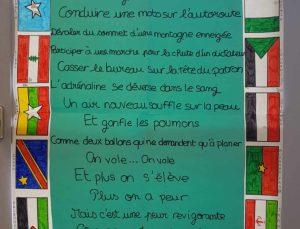 Conduire une moto sur l'autoroute
Dévaler du sommet d'une montagne enneigée
Participer à une marche pour la chute d'un dictateur
Casser le bureau sur la tête du patron
L'adrénaline se déverse dans le sang
Un air nouveau souffle sur la peau
Et gonfle les poumons
Comme deux ballons qui ne demandent qu'à planer
On vole... On vole
Et plus on s'élève
Plus on a peur
Mais c'est une peur revigorante